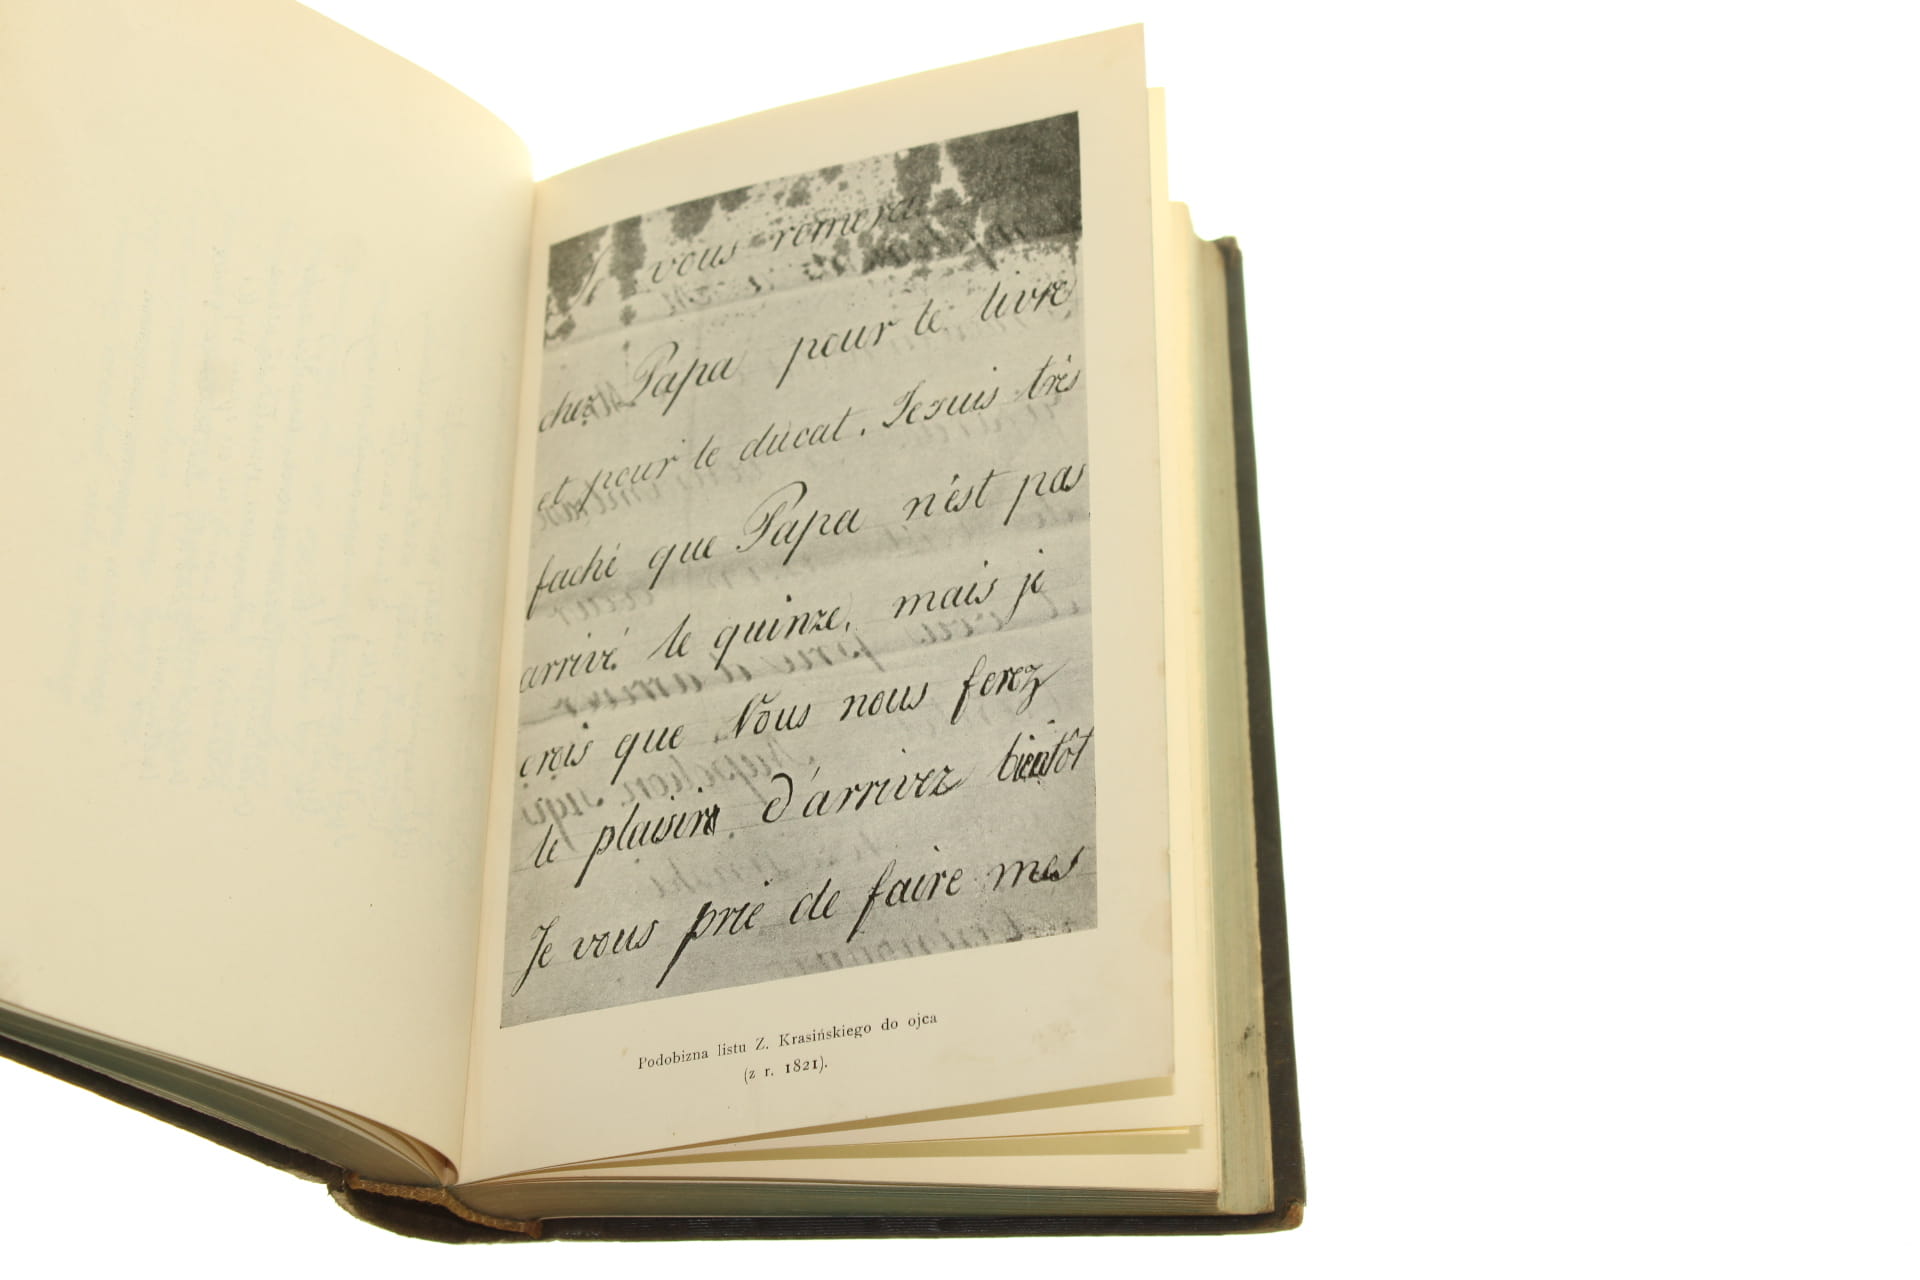 Je vous remerci
cher Papa pour le livre
et pour le ducat. Je suis très
faché que Papa n'est pas
arrivé le quinze, mais je
crois que Vous nous ferez
le plaisir d'arrivez bientôt
Je vous prie de faire mes
Podobizna listu Z. Krasińskiego do ojca
(z r. 1821).